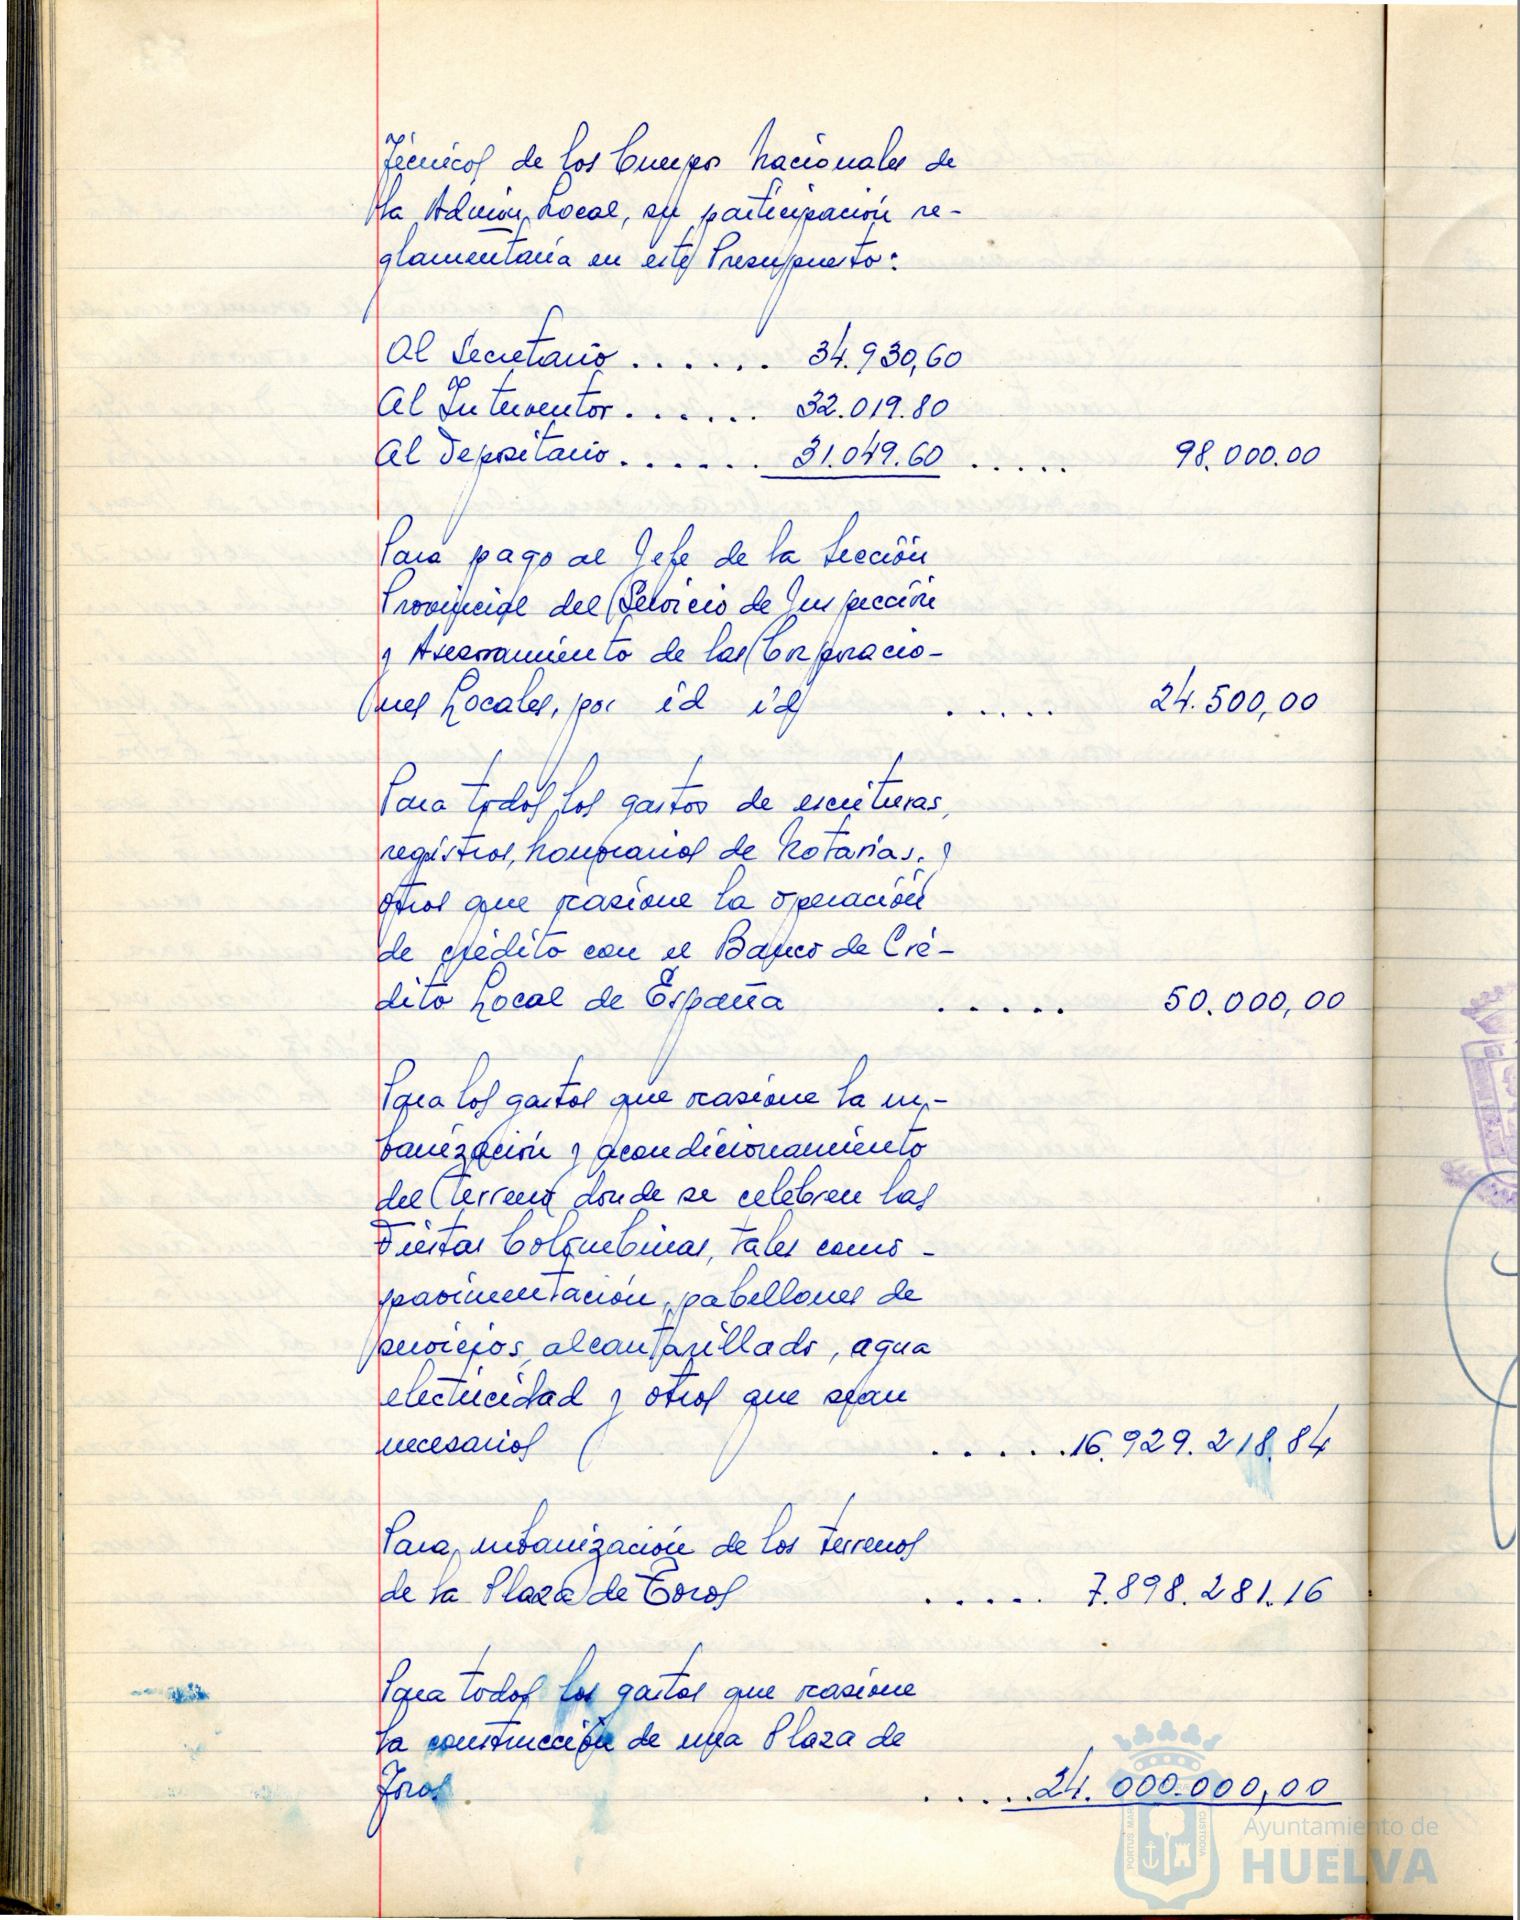 Técnicos de los Cuerpos Nacionales de
la Admón Local, su participación re-
glamentaria en este Presupuesto:
Al Secretario ...... 34.930,60
Al Interventor ...... 32.019.80
Al Depositario ...... 31.049.60 ..... 98.000.00
Para pago al Jefe de la Sección
Provincial del Servicio de Inspección
y Asesoramiento de las Corporacio-
nes Locales, por id id ..... 24.500,00
Para todos los gastos de escrituras,
registros, honorarios de Notarías, y
otros que ocasione la operación
de crédito con el Banco de Cré-
dito Local de España ..... 50.000,00
Para los gastos que ocasione la ur-
banización y acondicionamiento
del terreno donde se celebren las
Fiestas Colombinas, tales como -
pavimentación, pabellones de
servicios, alcantarillado, agua
electricidad y otros que sean
necesarios ..... 16.929.218.84
Para urbanización de los terrenos
de la Plaza de Toros ..... 7.898.281.16
Para todos los gastos que ocasione
la construcción de una Plaza de
Toros ..... 24.000.000,00
PORTUS MARIS
CUSTODIA
Ayuntamiento de
HUELVA